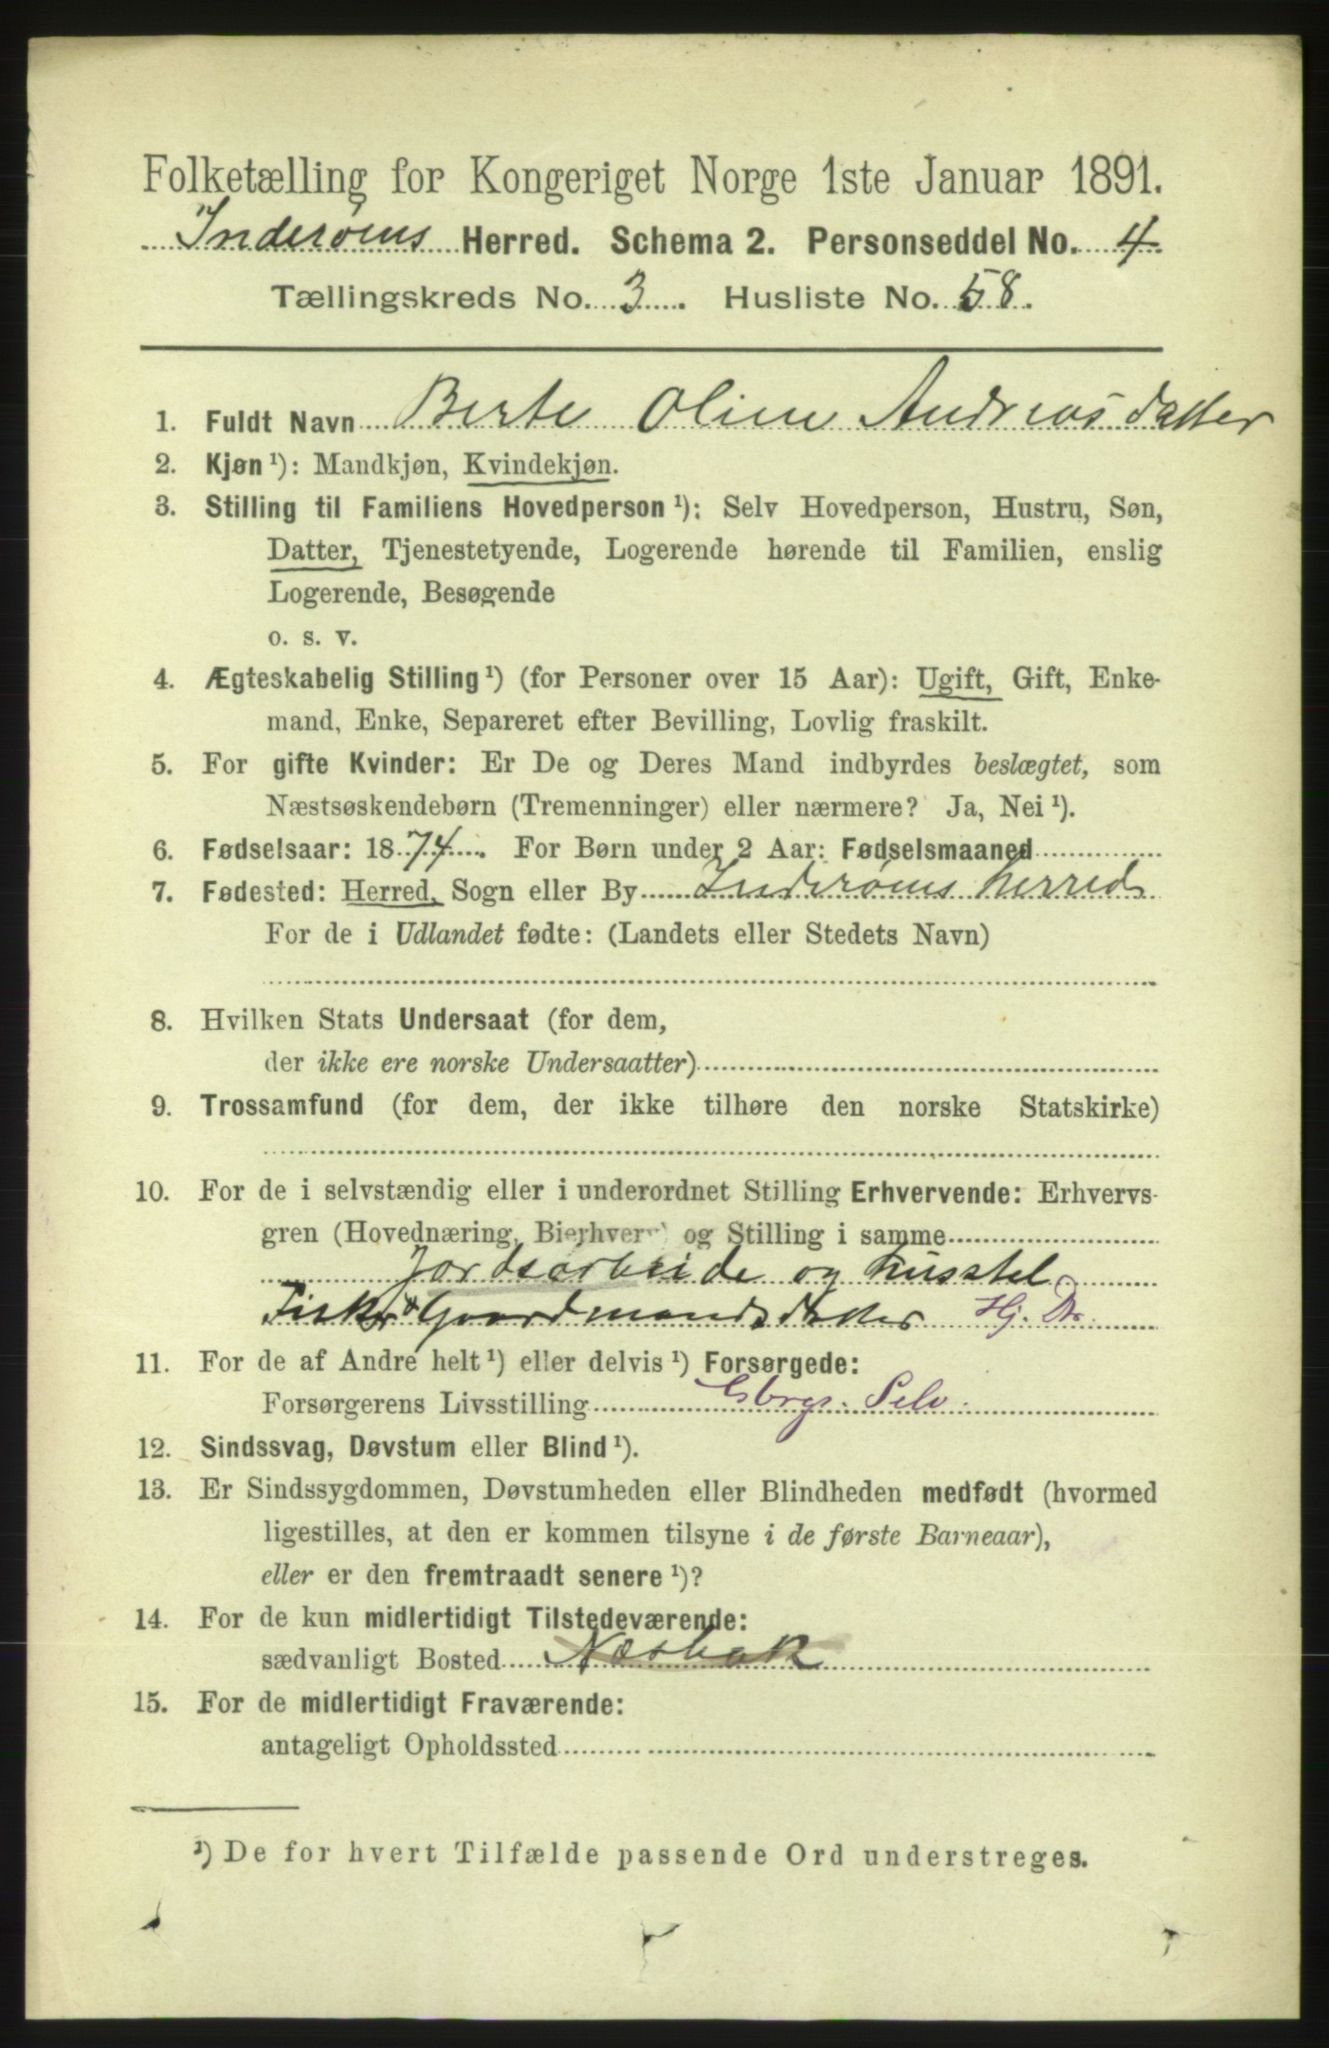 Folketælling for Kongeriget Norge 1ste Januar 1891.
Inderøens Herred. Schema 2. Personseddel No. 4
Tællingskreds No. 3. Husliste No. 58.
1. Fuldt Navn Berte Oline Andreasdatter
2. Kjøn ¹): Mandkjøn, Kvindekjøn.
3. Stilling til Familiens Hovedperson ¹): Selv Hovedperson, Hustru, Søn,
Datter, Tjenestetyende, Logerende hørende til Familien, enslig
Logerende, Besøgende
o. s. v.
4. Ægteskabelig Stilling ¹) (for Personer over 15 Aar): Ugift, Gift, Enke-
mand, Enke, Separeret efter Bevilling, Lovlig fraskilt.
5. For gifte Kvinder: Er De og Deres Mand indbyrdes beslægtet, som
Næstsøskendebørn (Tremenninger) eller nærmere? Ja, Nei ¹).
6. Fødselsaar: 1874. For Børn under 2 Aar: Fødselsmaaned
7. Fødested: Herred, Sogn eller By Inderøens herred
For de i Udlandet fødte: (Landets eller Stedets Navn)
8. Hvilken Stats Undersaat (for dem,
der ikke ere norske Undersaatter)
9. Trossamfund (for dem, der ikke tilhøre den norske Statskirke)
10. For de i selvstændig eller i underordnet Stilling Erhvervende: Erhvervs-
gren (Hovednæring, Bierhverv) og Stilling i samme
Jordsarbeide og husstel
Fisker & Gaardmandsdatter Hj. Dr.
11. For de af Andre helt ¹) eller delvis ¹) Forsørgede:
Forsørgerens Livsstilling Gbrgs. Selv.
12. Sindssvag, Døvstum eller Blind ¹).
13. Er Sindssygdommen, Døvstumheden eller Blindheden medfødt (hvormed
ligestilles, at den er kommen tilsyne i de første Barneaar),
eller er den fremtraadt senere ¹)?
14. For de kun midlertidigt Tilstedeværende:
sædvanligt Bosted Næsbak
15. For de midlertidigt Fraværende:
antageligt Opholdssted
¹) De for hvert Tilfælde passende Ord understreges.